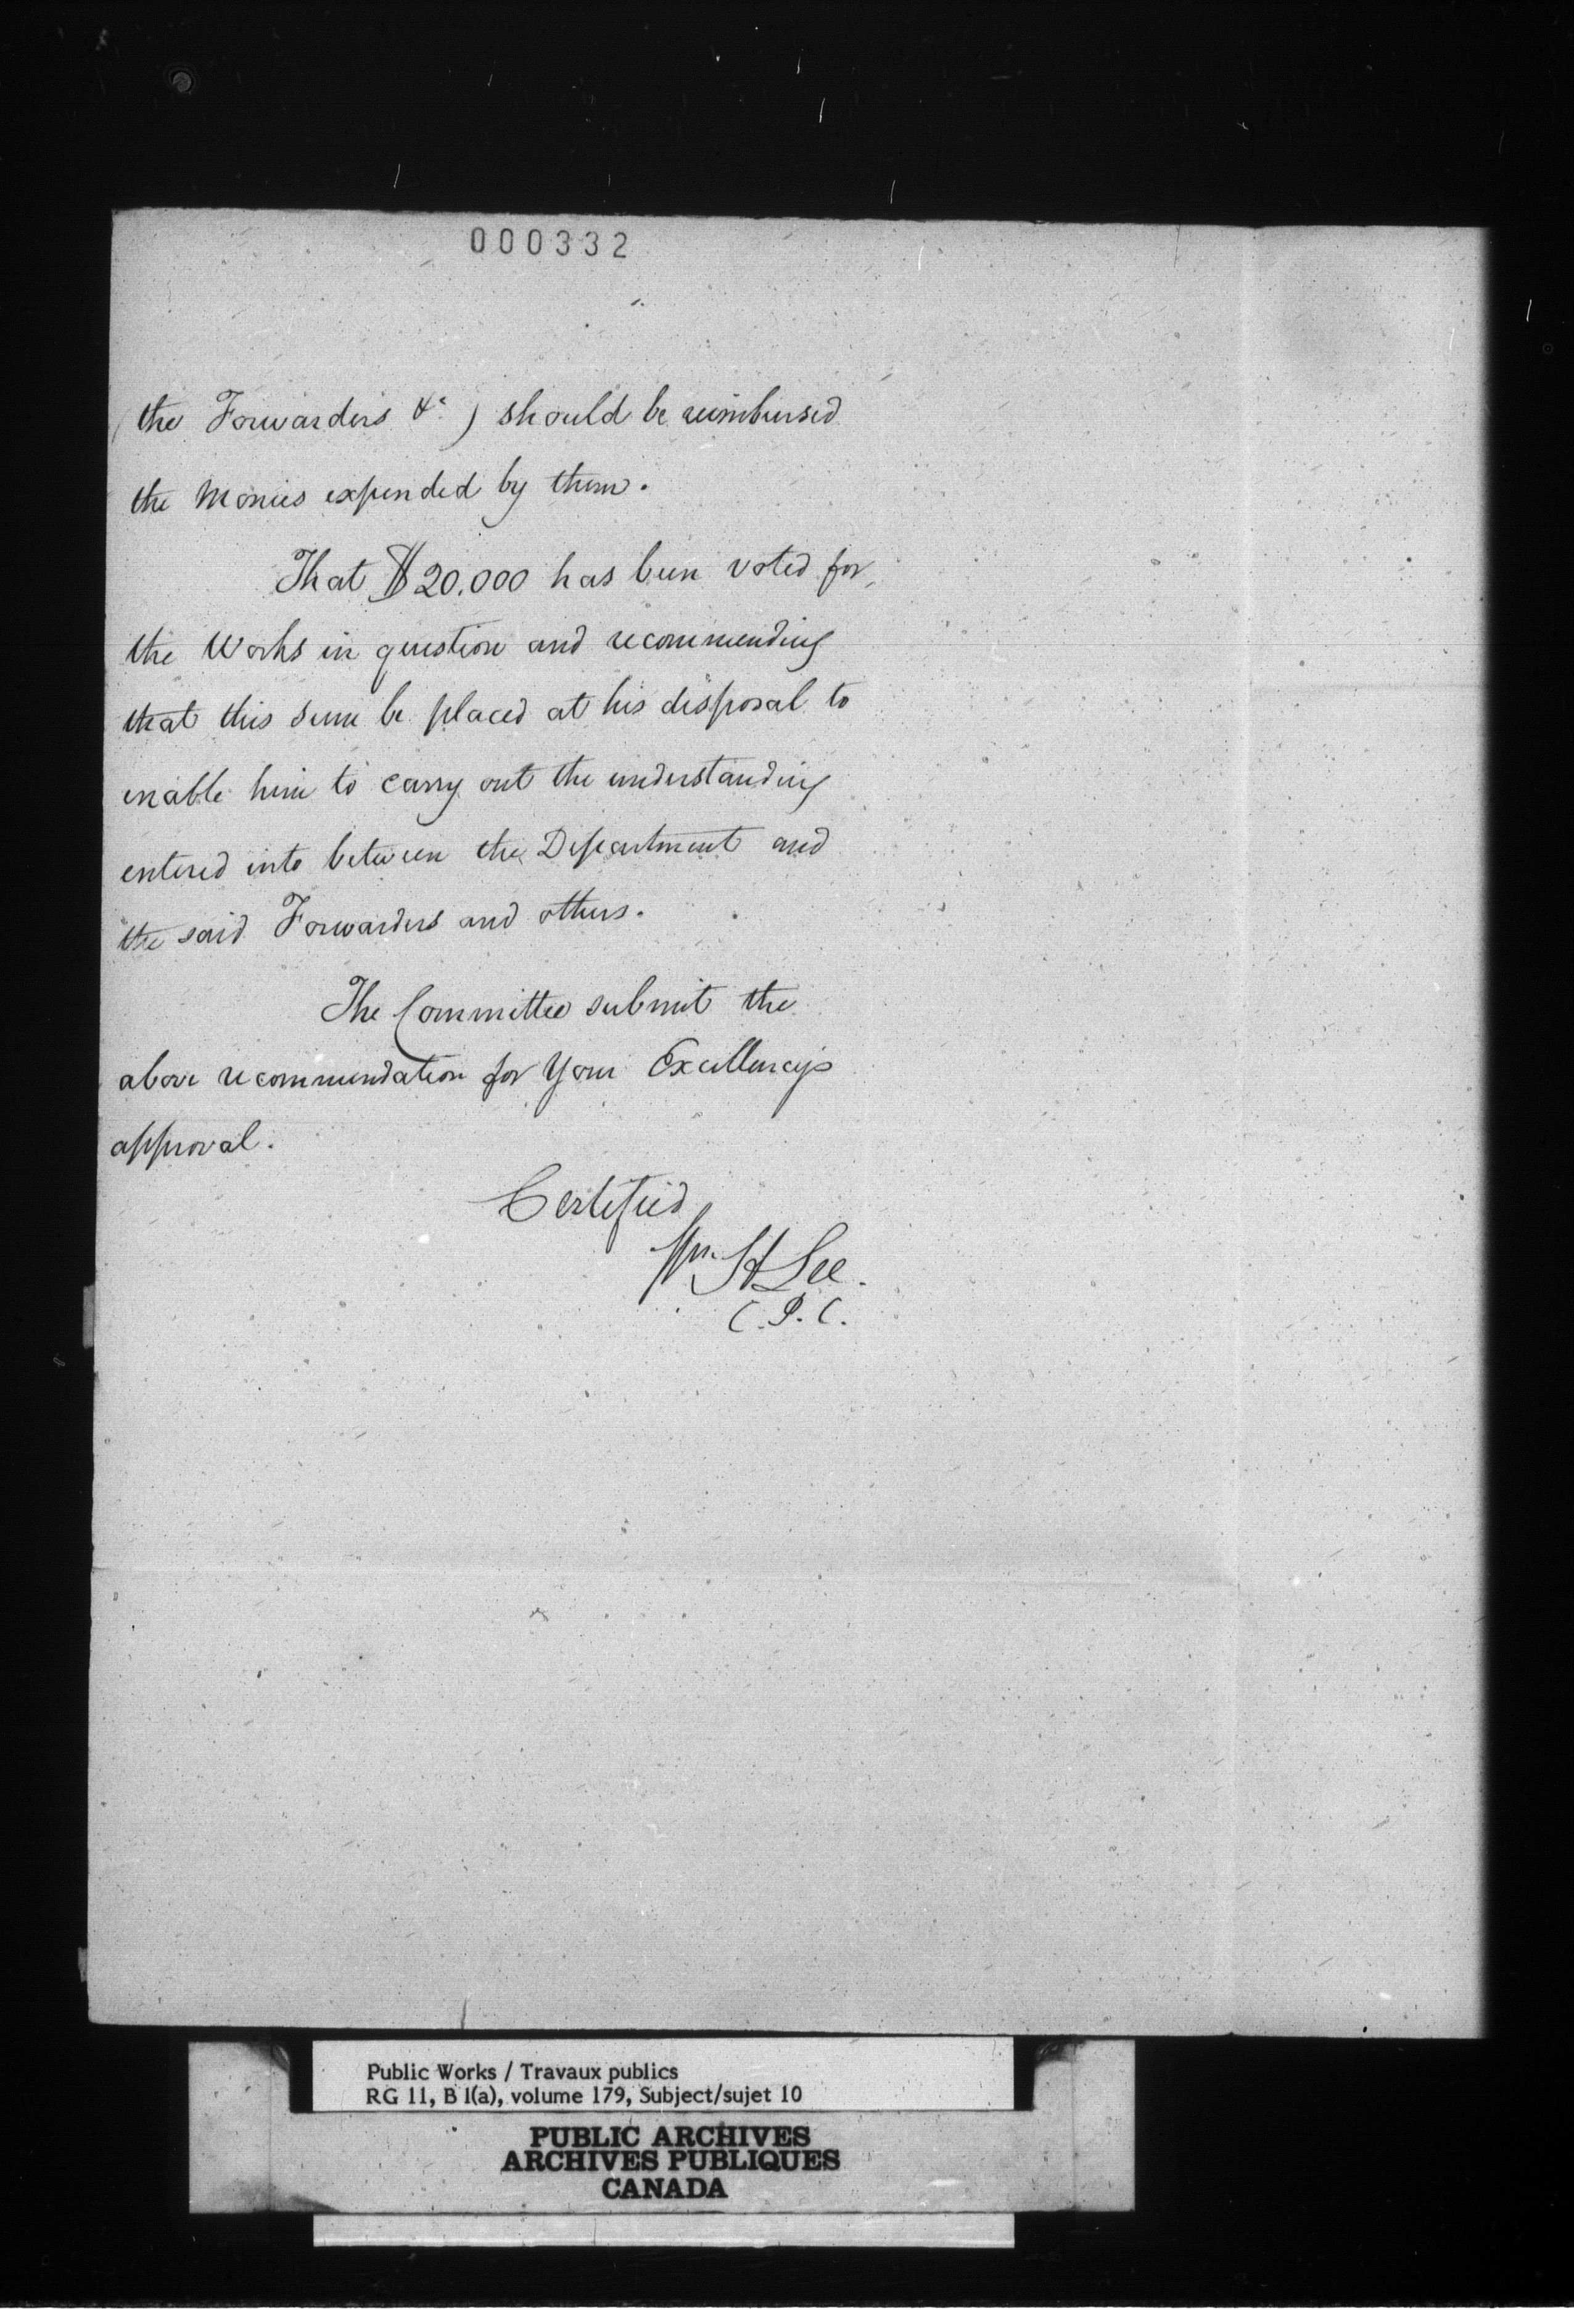 000332
(the Forwarders &c.) should be reimbursed
the Monies expended by them.
That $20.000 has been voted for
the Works in question and recommending
that this sum be placed at his disposal to
enable him to carry out the understanding
entered into between the Department and
the said Forwarders and others.
The Committee submit the
above recommendation for Your Excellency's
approval.
Certified
Wm. H Lee.
C.P.C.
Public Works / Travaux publics
RG 11, B 1(a), volume 179, Subject/sujet 10
PUBLIC ARCHIVES
ARCHIVES PUBLIQUES
CANADA